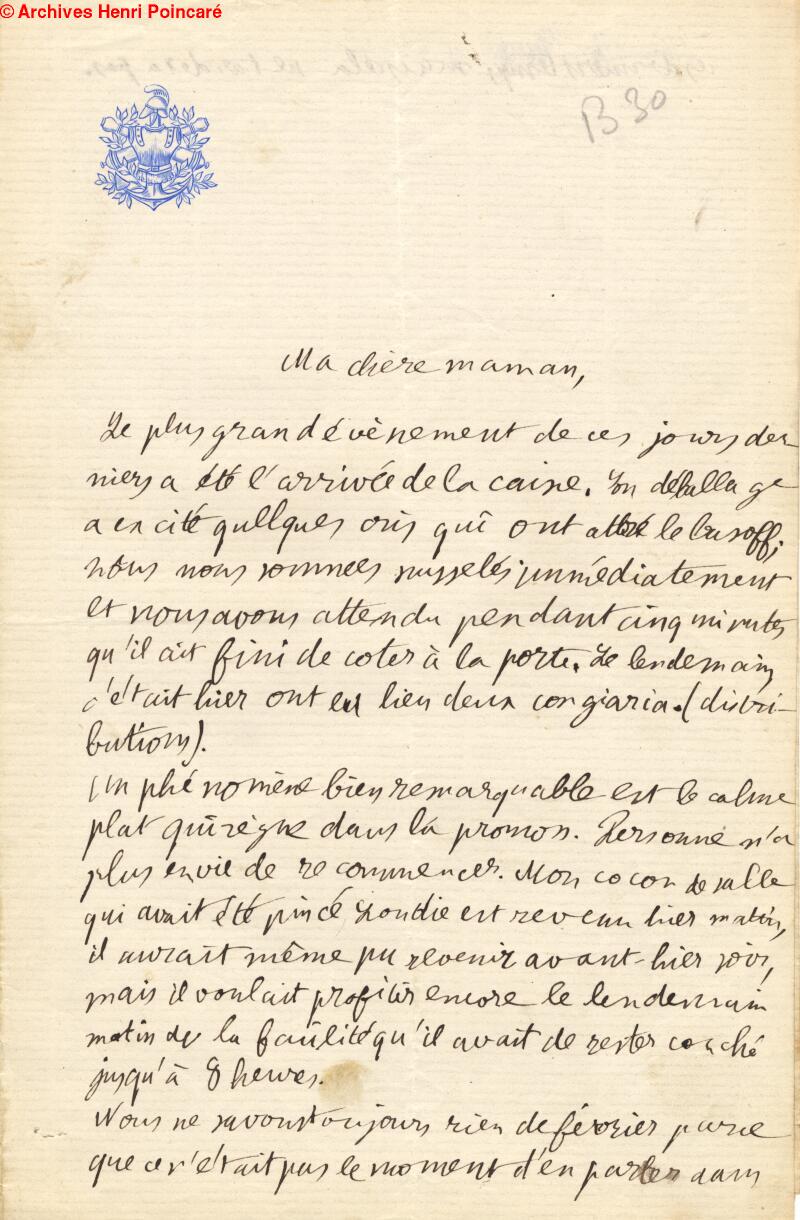 © Archives Henri Poincaré
B 30
Ma chère maman,
Le plus grand évènement de ces jours der-
niers a été l'arrivée de la caisse. Son déballage
a excité quelques cris qui ont attiré le basoff;
nous nous sommes musselés immédiatement
et nous avons attendu pendant cinq minutes
qu'il ait fini de coter à la porte. Le lendemain,
c'était hier ont eu lieu deux congiaria. (distri-
butions).
Un phénomène bien remarquable est le calme
plat qui règne dans la promos. Personne n'a
plus envie de recommencer. Mon cocon de salle
qui avait été pincé est revenu hier matin,
il aurait même pu revenir avant-hier soir,
mais il voulait profiter encore le lendemain
matin de la facilité qu'il avait de rester couché
jusqu'à 8 heures.
Nous ne savons toujours rien de février parce
que ce n'était pas le moment d'en parler dans